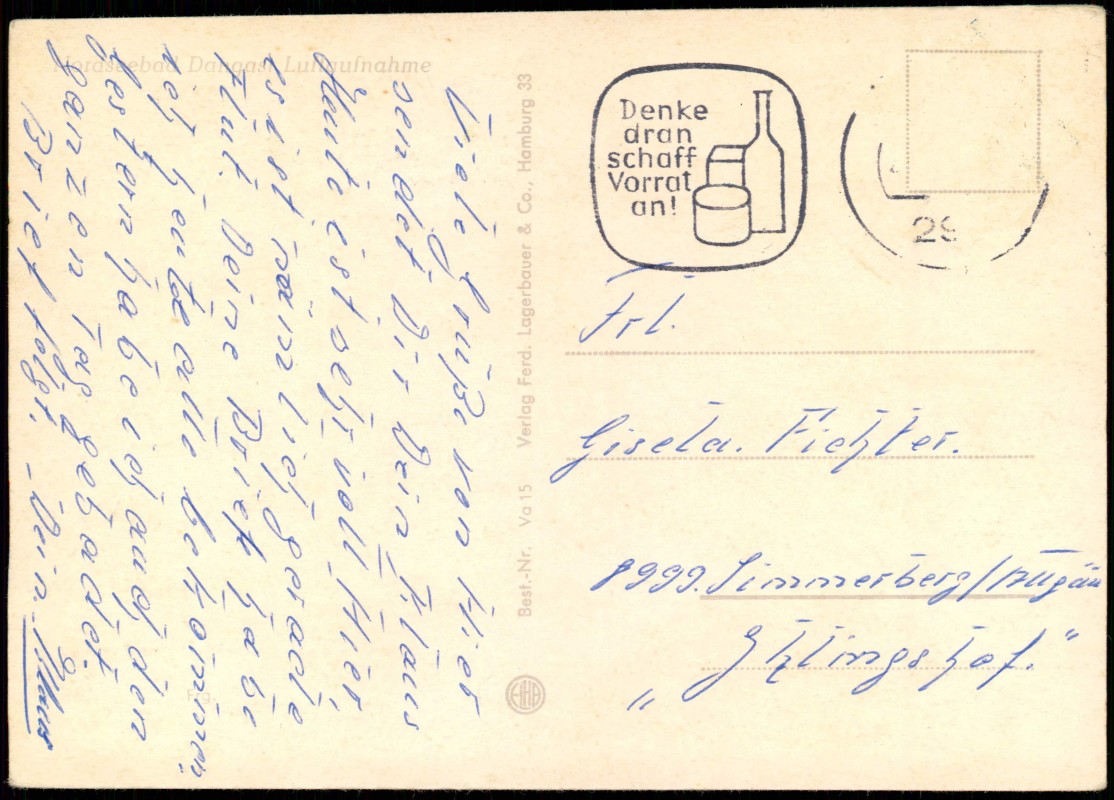 Nordseebad Dangast Luftaufnahme
Viele Grüße von Hier
sendet Dir Dein Klaus
Heute ist sehr voll Hier
es ist nämlich gerade
Flut. Deine Briefe habe
ich heute alle bekommen,
gestern habe ich auch den
ganzen Tag gebadet.
Brief folgt. Dein Klaus
Best.-Nr. Va 15 Verlag Ferd. Lagerbauer & Co., Hamburg 33
Denke
dran
schaff
Vorrat
an!
29
Frl.
Gisela. Fichter.
8999. Simmerberg/Allgäu
„ Ihlingshof.“